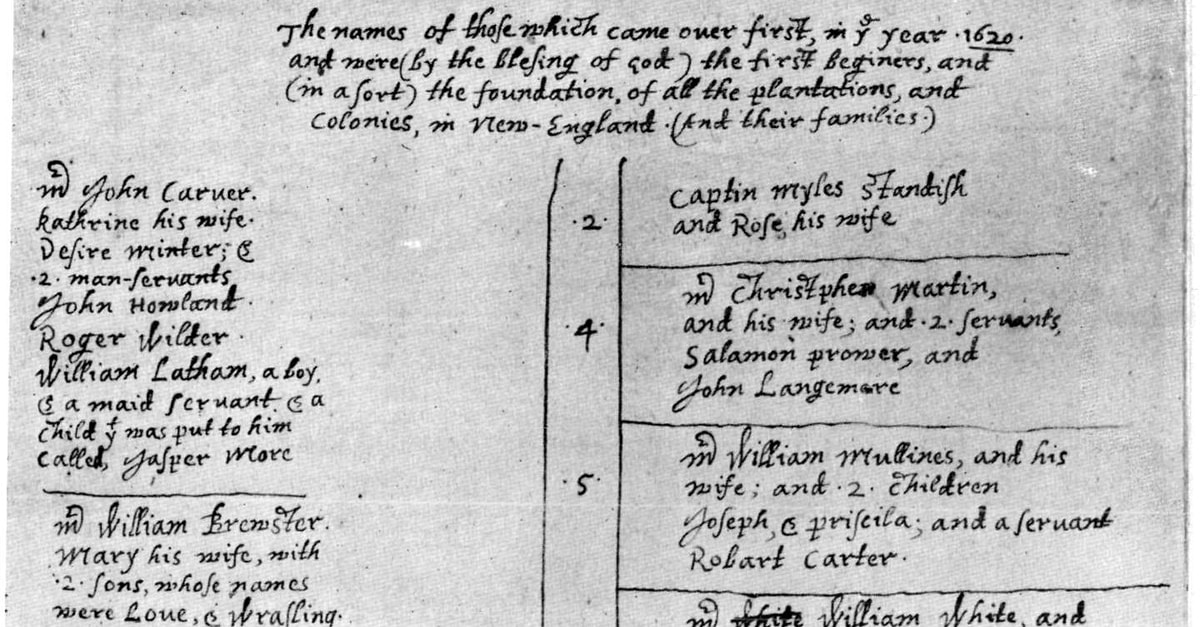 The names of those which came over first, in yᵉ year .1620.
and were (by the blesing of god) the first beginers, and
(in a sort) the foundation, of all the plantations, and
Colonies, in New-England. (And their families.)
mʳ John Carver.
kathrine his wife.
Desire minter; &
.2. man-servants
John Howland.
Roger Wilder.
William Latham, a boy,
& a maid servant. & a
child yᵗ was put to him
called, Jasper More
mʳ William Brewster.
Mary his wife, with
.2. sons, whose names
were Love, & Wrasling.
.2.
.4.
.5.
Captin Myles Standish
and Rose, his wife
mʳ Christpher Martin,
and his wife; and .2. servants,
Salamon prower, and
John Langemore
mʳ William Mullines, and his
wife; and .2. children
Joseph, & priscila; and a servant
Robart Carter.
mʳ white William White, and